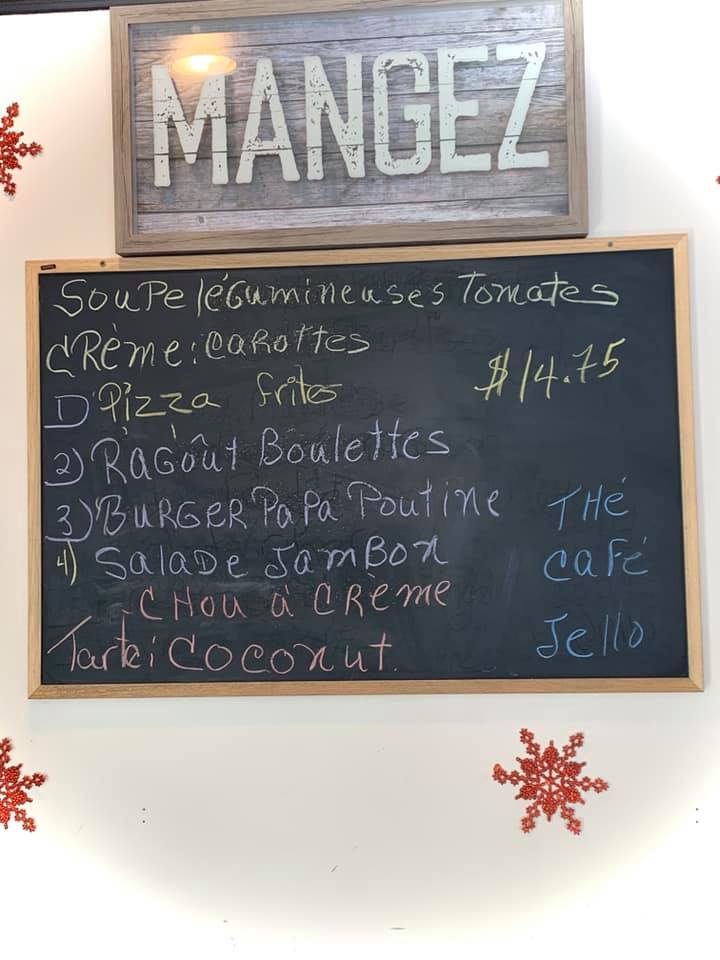 MANGEZ
Soupe légumineuses Tomates
CRème: Carottes
$14.75
1) Pizza frites
2) Ragoût Boulettes
3) BURGER PaPa Poutine
THé
4) SalaDe JamBon
Café
CHou à CRème
Jello
Tarte: Coconut.